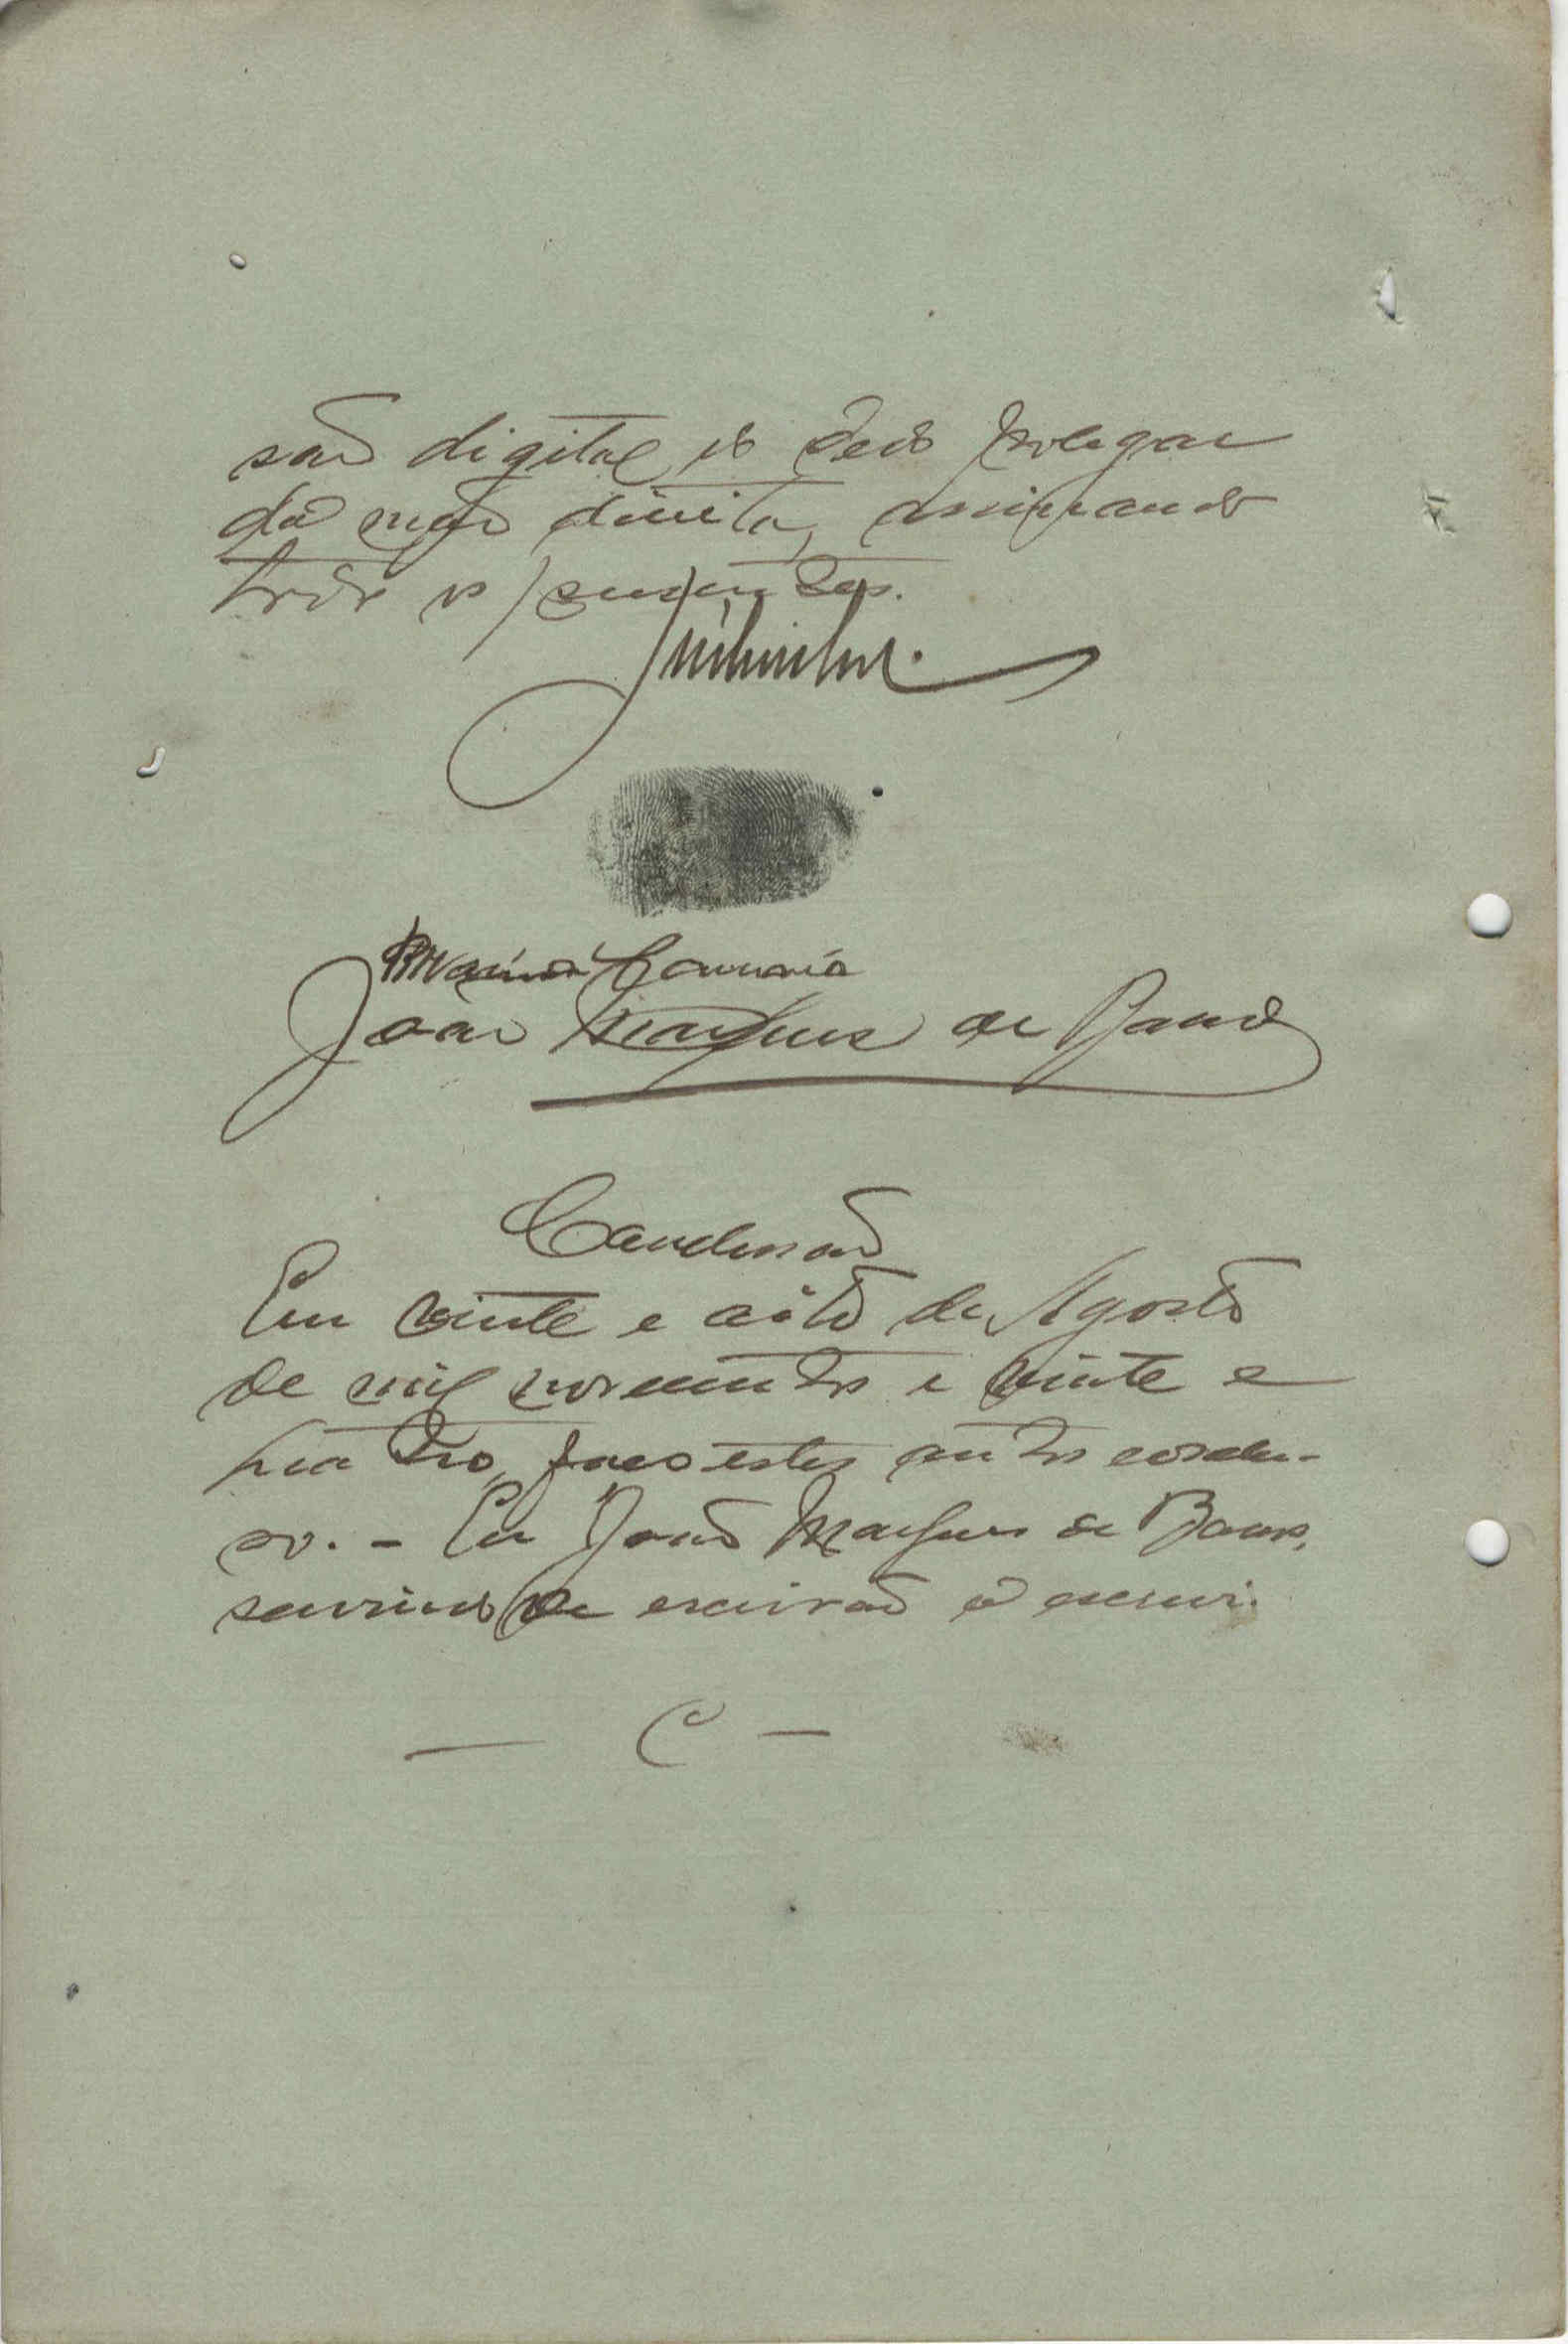 são digital do dedo polegar
da mão direita, assignando
todos os presentes.
João Marques de Barros
Conclusão
Em vinte e oito de Agosto
de mil novecentos e vinte e
quatro, faço estes autos conclu-
so. - Eu João Marques de Barros,
servindo de escrivão o escrevi.
— C —